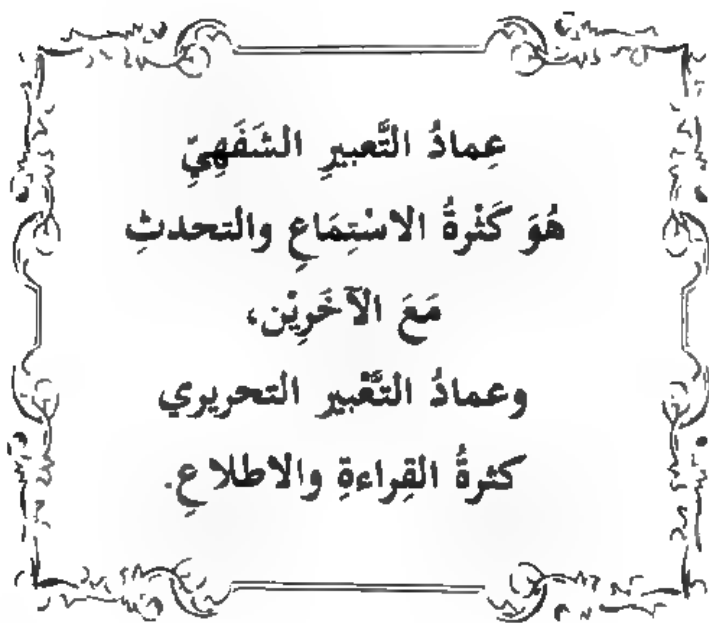 عِمادُ التَّعبيرِ الشَفَهِيِّ
هُوَ كَثْرةُ الاسْتِمَاعِ والتحدثِ
مَعَ الآخَرِيْن،
وعمادُ التَّعْبيرِ التحريري
كثرةُ القِراءةِ والاطلاعِ.